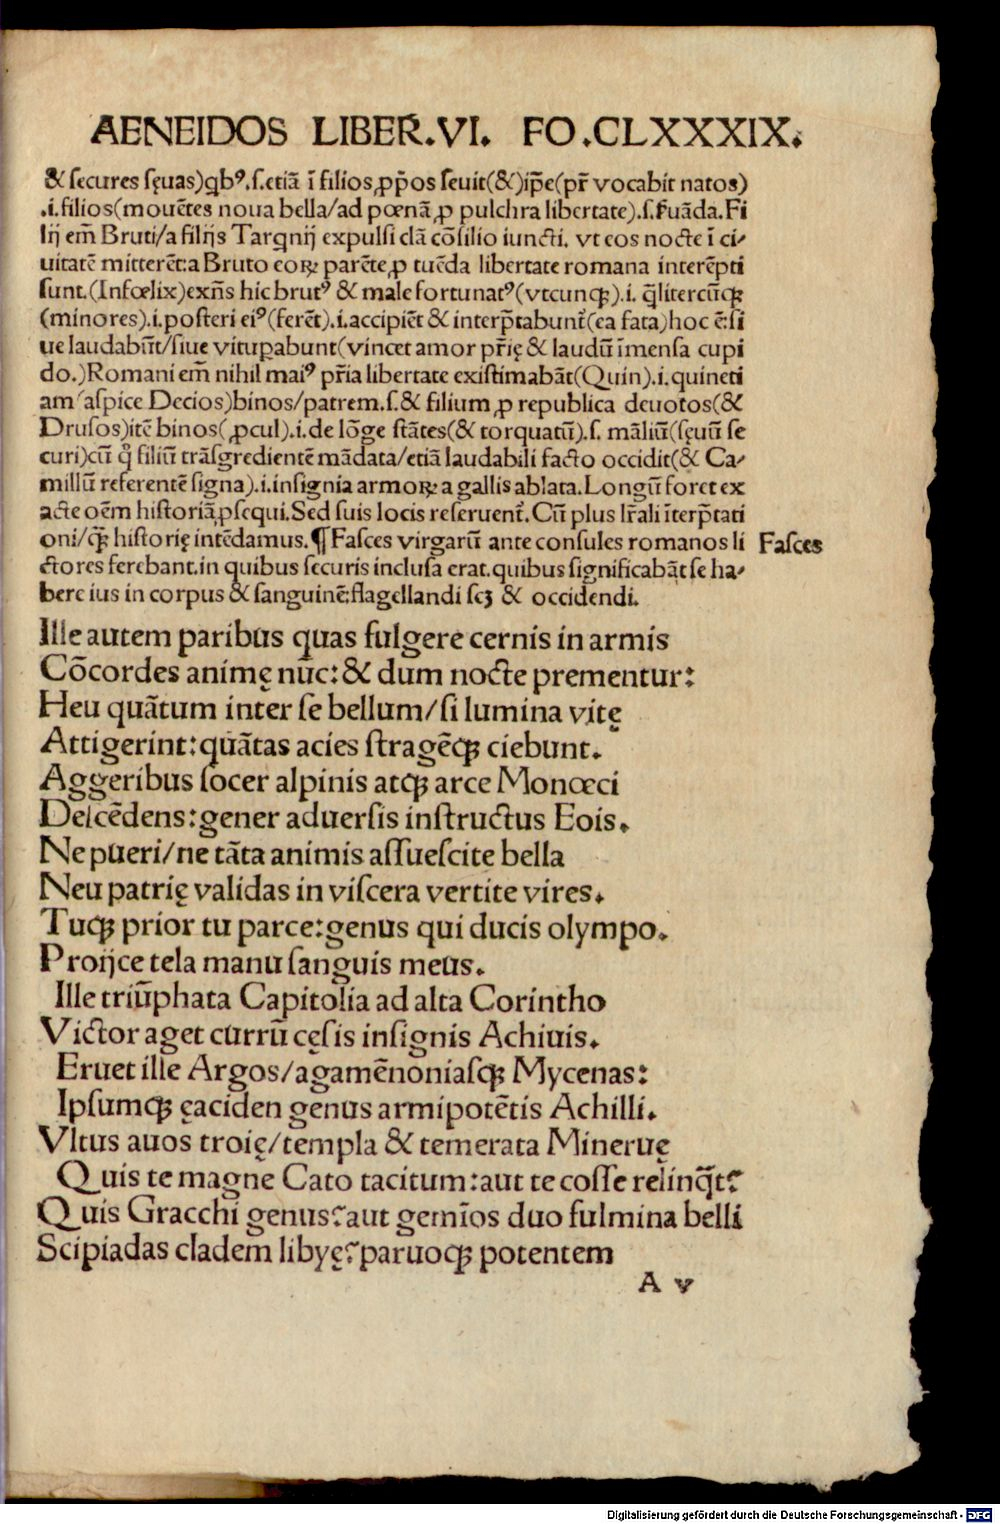 AENEIDOS LIBER.VI. FO.CLXXXIX.
& ſecures ſęuas)ꝗbꝰ.ſ.etiã ĩ filios ꝓp̃os ſeuit(&)ip̃e(pr̃ vocabit natos)
.i.filios(mouẽtes noua bella/ad pœnã ꝓ pulchra libertate).ſ.ſ̃uãda.Fi
lij em̃ Bruti/a filijs Tarꝗnij expulſi clã cõſilio iuncti. vt eos nocte ĩ ci⸗
uitatẽ mitterẽt:a Bruto eoꝝ parẽte ꝓ tuẽda libertate romana interẽpti
ſunt.(Infœlix)exñs hic brutꝰ & male fortunatꝰ(vtcunqꝫ).i. q̃litercũqꝫ
(minores).i.poſteri eiꝰ(ferẽt).i.accipiẽt & interp̃tabunt᷑(ea fata)hoc ẽ:ſi
ue laudabũt/ſiue vituꝑabunt(vincet amor pr̃ię & laudũ ĩmenſa cupi
do.)Romani em̃ nihil maiꝰ pr̃ia libertate exiſtimabãt(Quin).i.quineti
am(aſpice Decios)binos/patrem.ſ.& filium ꝓ republica deuotos(&
Druſos)itẽ binos(ꝓcul).i.de lõge ſtãtes(& torquatũ).ſ. mãliũ(ſęuũ ſe
curi)cũ ꝙ filiũ trãſgredientẽ mãdata/etiã laudabili facto occidit(& Ca⸗
millũ referentẽ ſigna).i.inſignia armoꝝ a gallis ablata.Longũ foret ex
acte oẽm hiſtoriã ꝓſequi.Sed ſuis locis reſeruent᷑. Cũ plus lr̃ali ĩterp̃tati
oni/qꝫ̃ hiſtorię intẽdamus.¶ Faſces virgarũ ante conſules romanos li
Faſces
ctores ferebant.in quibus ſecuris incluſa erat.quibus ſignificabãt ſe ha⸗
bere ius in corpus & ſanguinẽ:flagellandi ſcꝫ & occidendi.
Ille autem paribus quas fulgere cernis in armis
Cõcordes animę nũc:& dum nocte prementur:
Heu quãtum inter ſe bellum/ſi lumina vitę
Attigerint:quãtas acies ſtragẽqꝫ ciebunt.
Aggeribus ſocer alpinis atqꝫ arce Monœci
Deſcẽdens:gener aduerſis inſtructus Eois.
Ne pueri/ne tãta animis aſſueſcite bella
Neu patrię validas in viſcera vertite vires.
Tuqꝫ prior tu parce:genus qui ducis olympo.
Proijce tela manu ſanguis meus.
Ille triũphata Capitolia ad alta Corintho
Victor aget currũ cęſis inſignis Achiuis.
Eruet ille Argos/agamẽnoniaſqꝫ Mycenas:
Ipſumqꝫ ęaciden genus armipotẽtis Achilli.
Vltus auos troię/templa & temerata Mineruę
Quis te magne Cato tacitum:aut te coſſe relinq̃t?
Quis Gracchi genus?aut gemĩos duo fulmina belli
Scipiadas cladem libyę?paruoqꝫ potentem
A v
Digitalisierung gefördert durch die Deutsche Forschungsgemeinschaft - DFG